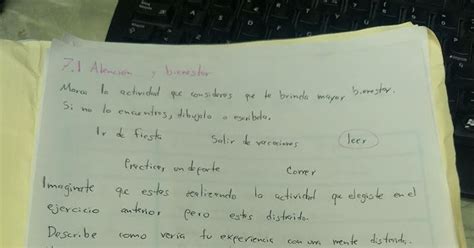 7.1 Atención y bienestar
Marca la actividad que consideres que te brinda mayor bienestar.
Si no la encuentras, dibujala o escribela.
Ir de fiesta Salir de vacaciones leer
Practicar un deporte Correr
Imaginate que estas realizando la actividad que elegiste en el
ejercicio anterior pero estas distraido.
Describe como veria tu experiencia con una mente distraida.